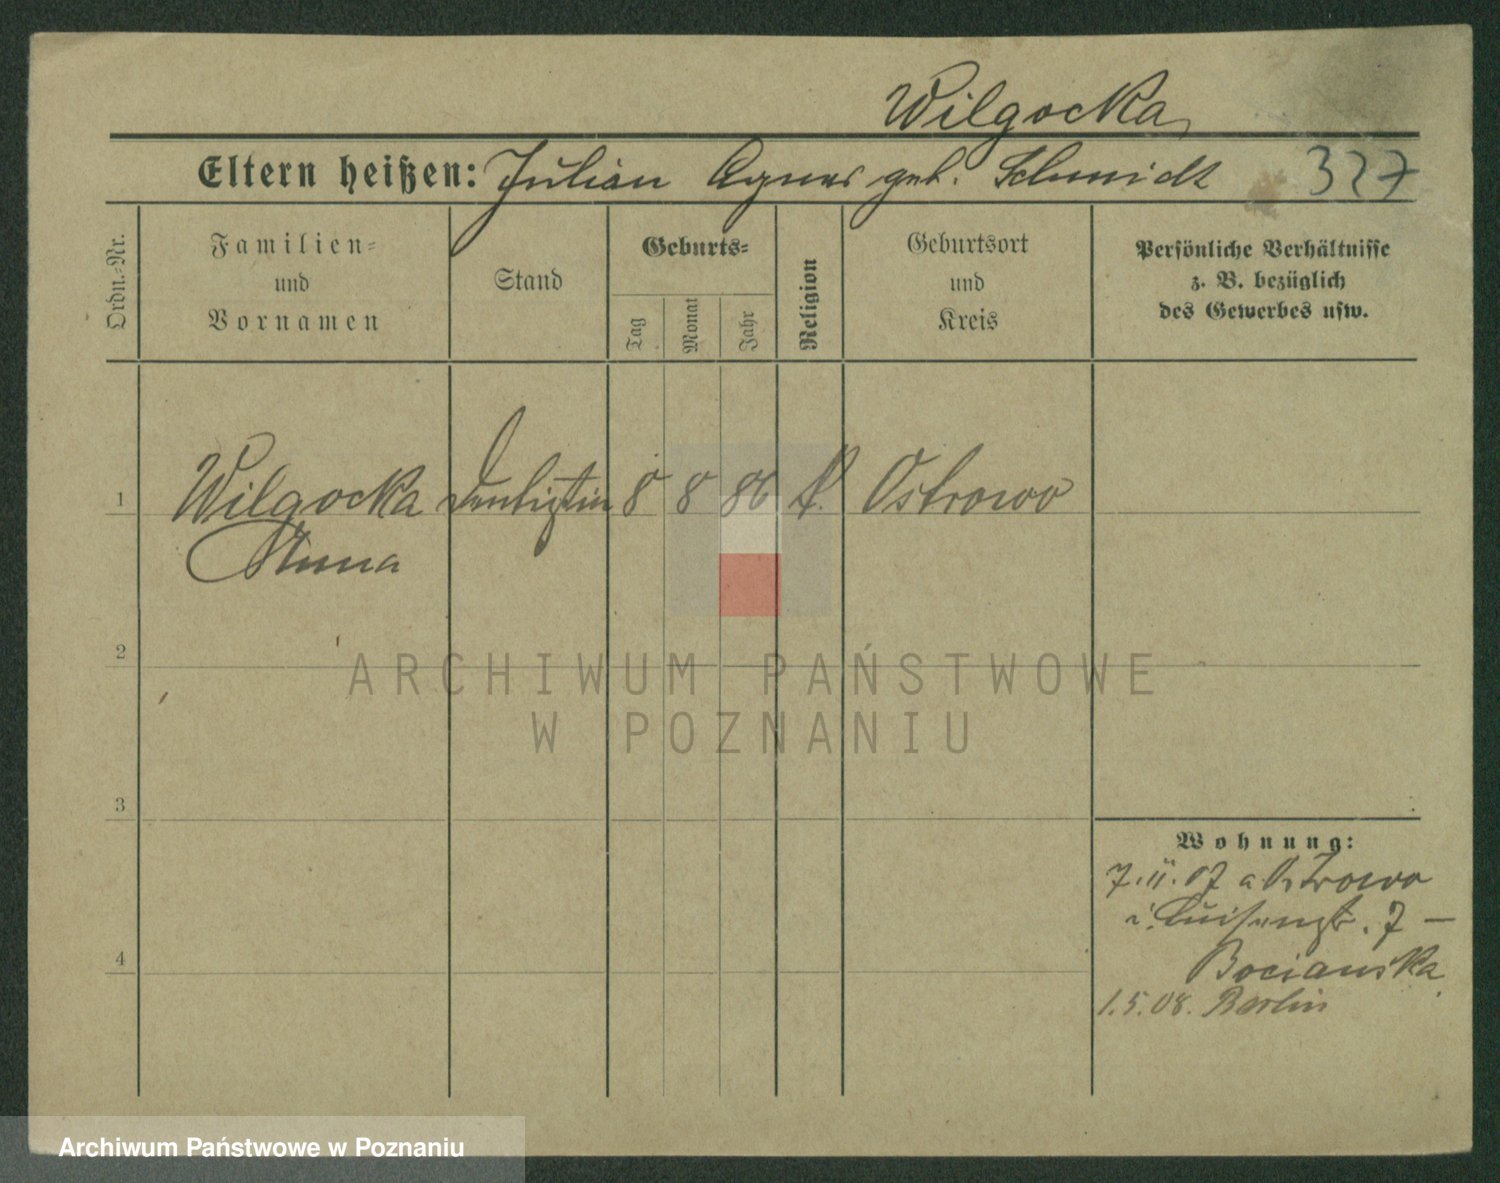 Wilgocka
Eltern heißen: Julian Agnes geb. Schmidt 327
Ordn.-Nr.
Familien-
und
Vornamen
Stand
Geburts-
Tag
Monat
Jahr
Religion
Geburtsort
und
Kreis
Persönliche Verhältnisse
z. B. bezüglich
des Gewerbes usw.
1 Wilgocka Dentistin 8 8 86 k. Ostrowo
Anna
2
3
4
Wohnung:
7.11.07 a Ostrowo
Luisenstr. 7 —
Bocianska
1.5.08. Berlin
ARCHIWUM PAŃSTWOWE
W POZNANIU
Archiwum Państwowe w Poznaniu